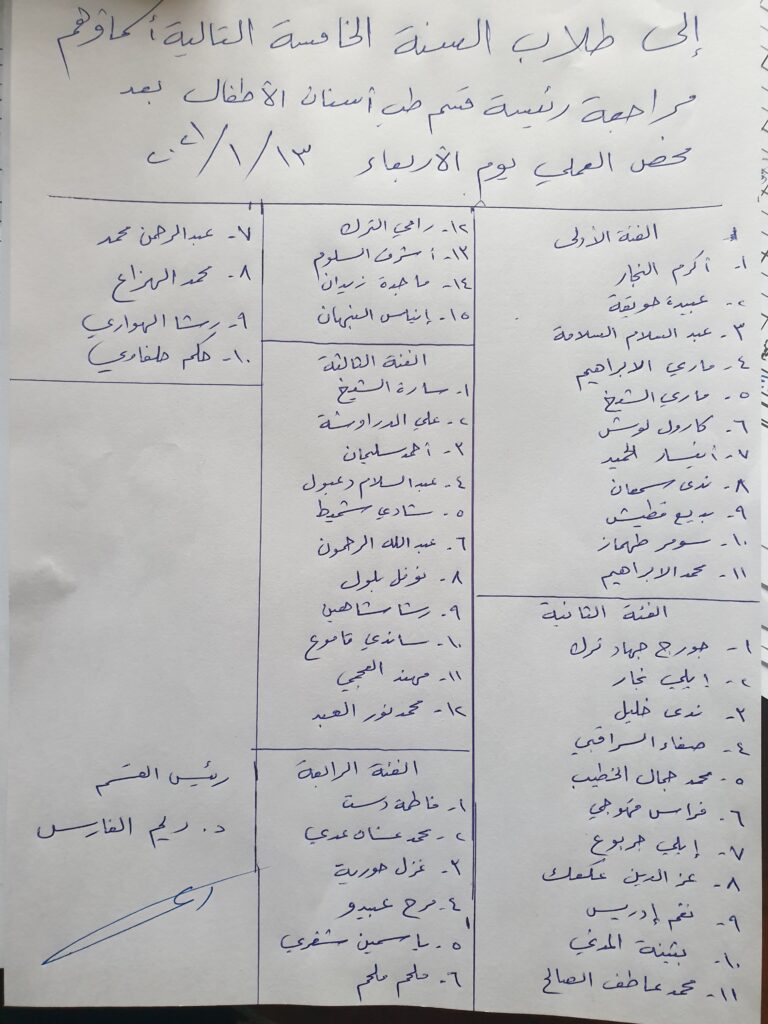 إلى طلاب السنة الخامسة التالية أسماؤهم
مراجعة رئيسة قسم طب أسنان الأطفال بعد
محض العملي يوم الأربعاء ١٣/١/٢٠٢١
الفئة الأولى
١- أكرم النجار
٢- عبيدة حويقة
٣- عبد السلام السلامة
٤- ماري الابراهيم
٥- ماري الشيخ
٦- كارول لوش
٧- أنيسار الحميد
٨- ندى سمعان
٩- بديع قطيش
١٠- سومر طهماز
١١- محمد الابراهيم
الفئة الثانية
١- جورج جهاد ترك
٢- إيلي نجار
٣- ندى خليل
٤- صفاء السراقبي
٥- محمد جمال الخطيب
٦- فراس قهوجي
٧- إيلي جربوع
٨- عز الدين عكعك
٩- نغم إدريس
١٠- بثينة المدني
١١- محمد عاطف الصالح
١٢- رامي الترك
١٣- أشرف السلوم
١٤- ماجدة زيدان
١٥- إيناس النبهان
الفئة الثالثة
١- سارة الشيخ
٢- علي الدراوشة
٣- أحمد سليمان
٤- عبد السلام دعبول
٥- شادي شميط
٦- عبد الله الرحمون
٨- نوفل بلول
٩- رشا شاهين
١٠- ساندي قاموع
١١- مهند العجمي
١٢- محمد نور العبد
الفئة الرابعة
١- فاطمة دست
٢- محمد عدي
٣- غزل حورية
٤- مرح عبيدو
٥- ياسمين شغري
٦- ملحم ملحم
٧- عبد الرحمن محمد
٨- محمد الهزاع
٩- رشا الهواري
١٠- حكم حلفاوي
رئيس القسم
د. ريم الفارس